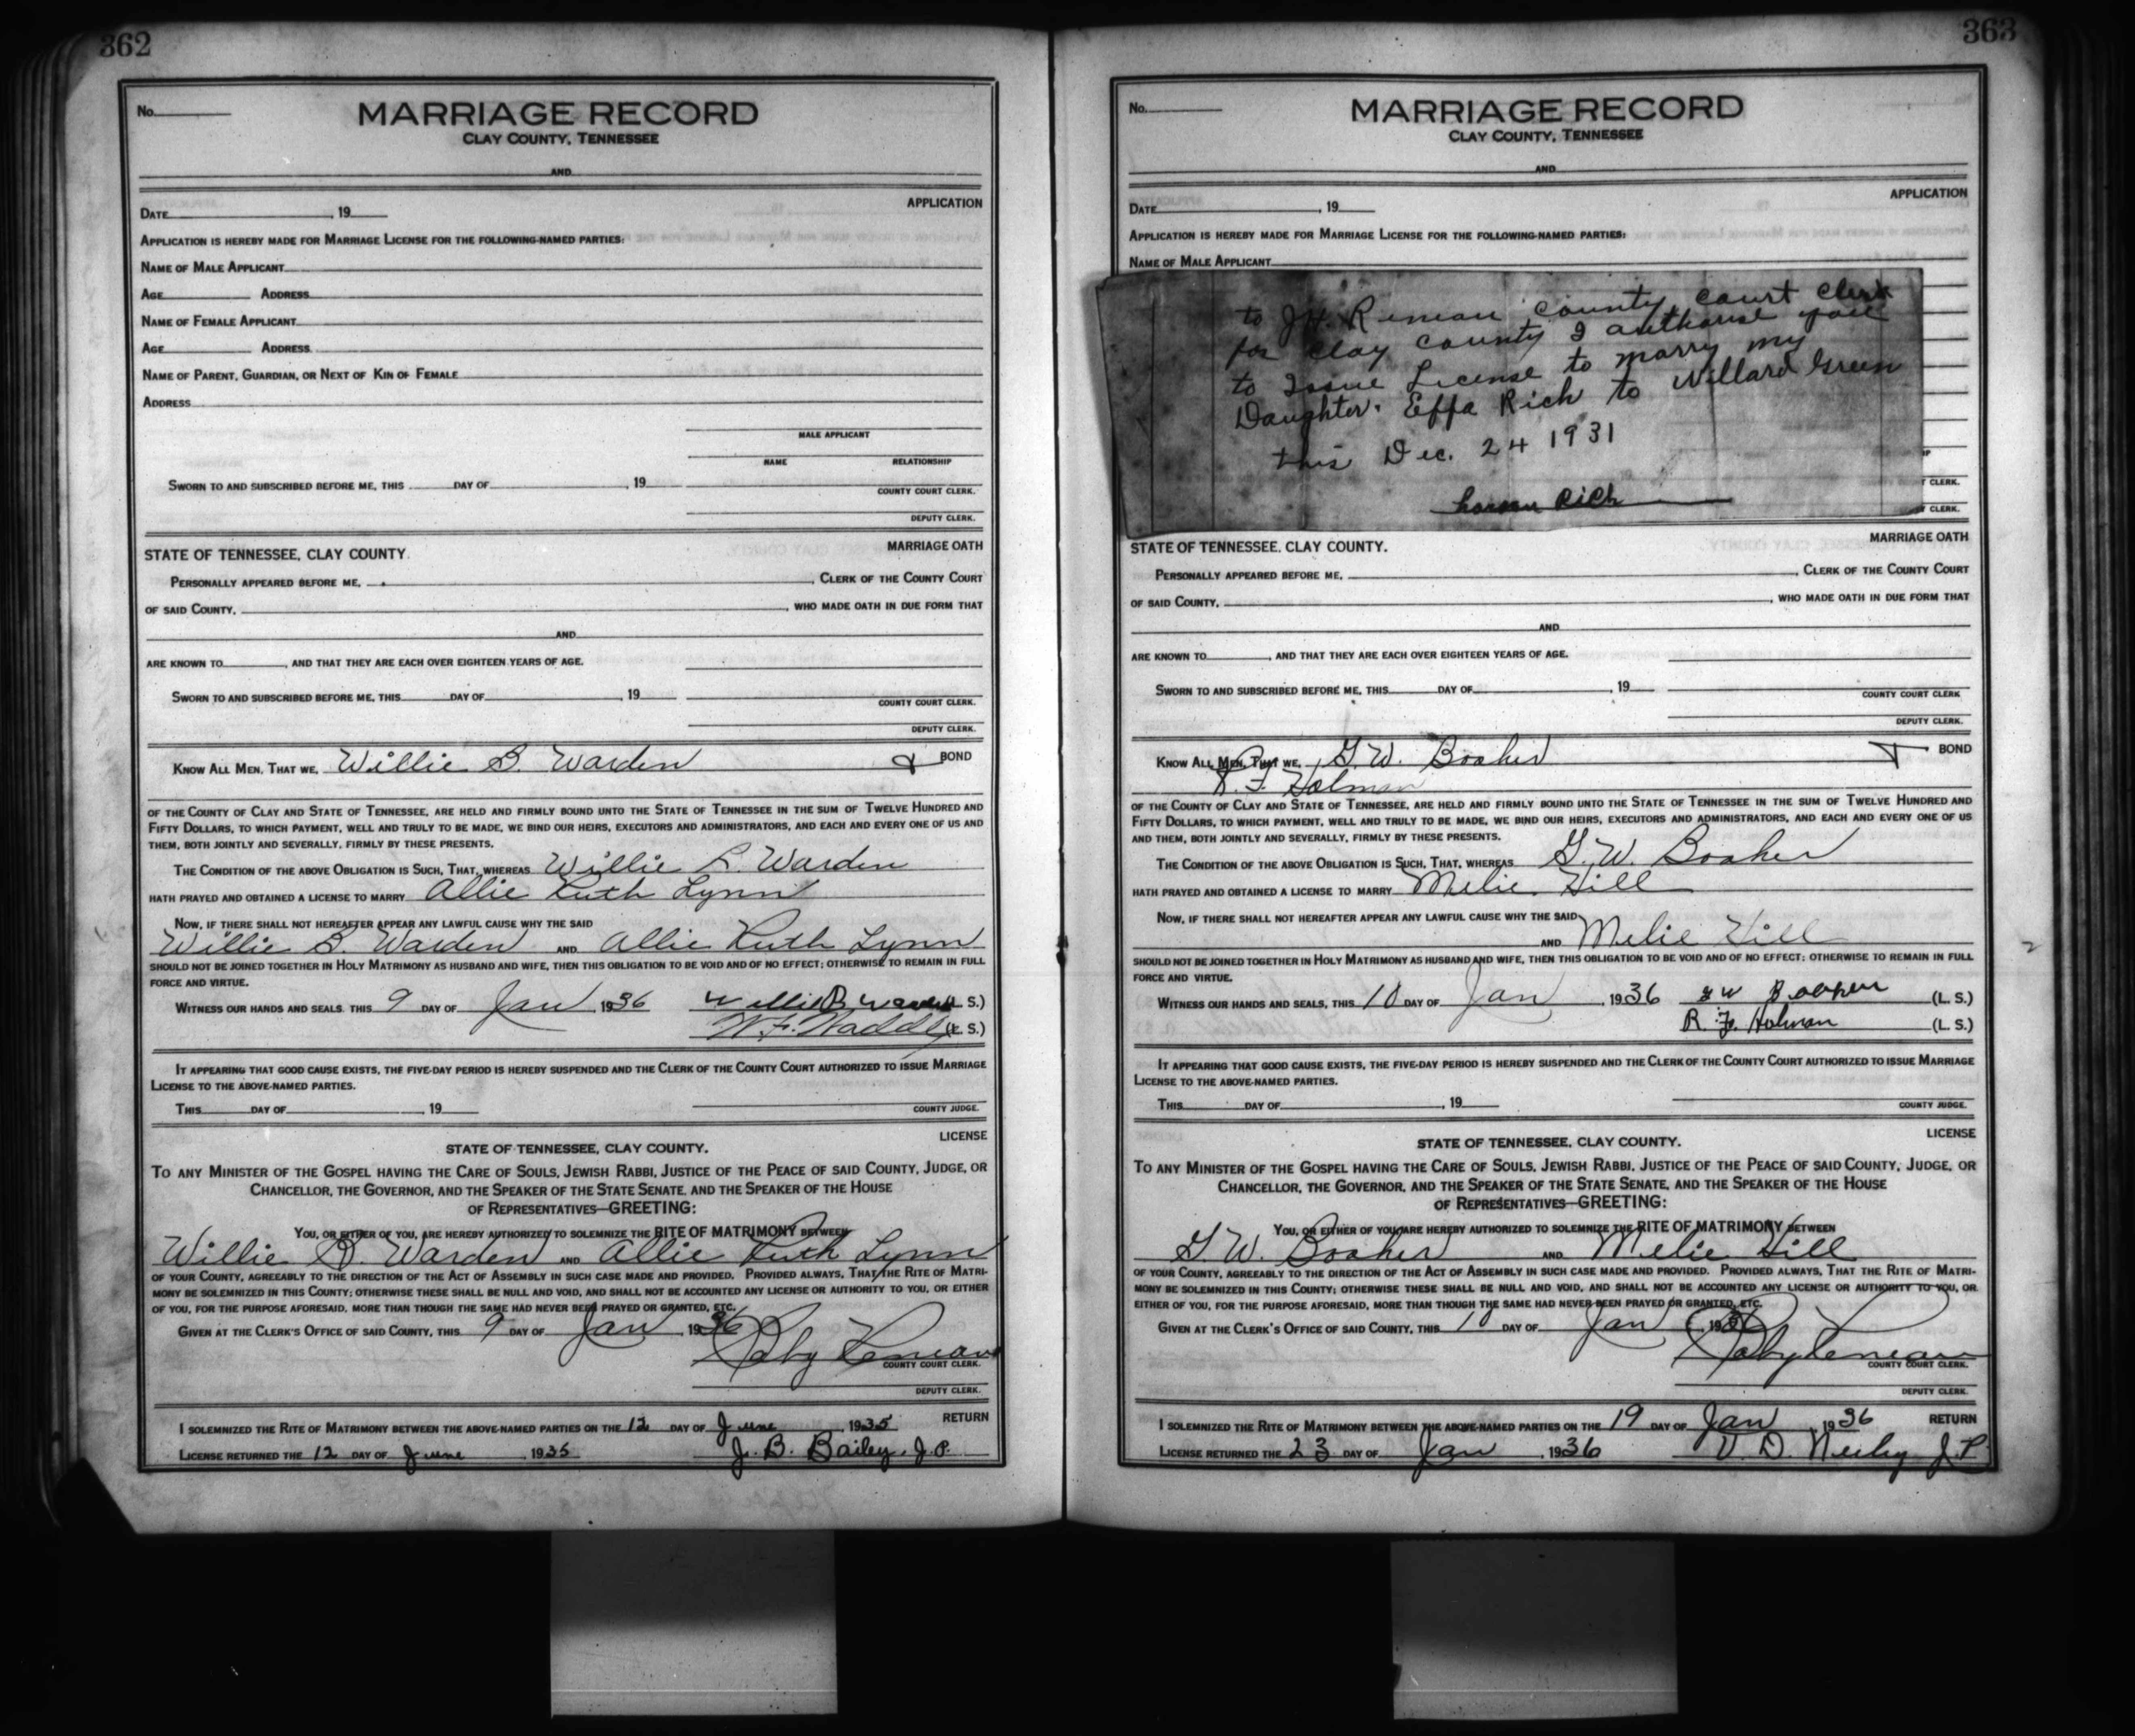 362
No.
MARRIAGE RECORD
CLAY COUNTY, TENNESSEE
AND
APPLICATION
DATE , 19
APPLICATION IS HEREBY MADE FOR MARRIAGE LICENSE FOR THE FOLLOWING-NAMED PARTIES:
NAME OF MALE APPLICANT
AGE ADDRESS
NAME OF FEMALE APPLICANT
AGE ADDRESS
NAME OF PARENT, GUARDIAN, OR NEXT OF KIN OF FEMALE
ADDRESS
MALE APPLICANT
NAME RELATIONSHIP
SWORN TO AND SUBSCRIBED BEFORE ME, THIS DAY OF , 19
COUNTY COURT CLERK.
DEPUTY CLERK.
STATE OF TENNESSEE, CLAY COUNTY. MARRIAGE OATH
PERSONALLY APPEARED BEFORE ME, , CLERK OF THE COUNTY COURT
OF SAID COUNTY, , WHO MADE OATH IN DUE FORM THAT
AND
ARE KNOWN TO , AND THAT THEY ARE EACH OVER EIGHTEEN YEARS OF AGE.
SWORN TO AND SUBSCRIBED BEFORE ME, THIS DAY OF , 19
COUNTY COURT CLERK.
DEPUTY CLERK.
KNOW ALL MEN, THAT WE, Willie B. Warden & BOND
OF THE COUNTY OF CLAY AND STATE OF TENNESSEE, ARE HELD AND FIRMLY BOUND UNTO THE STATE OF TENNESSEE IN THE SUM OF TWELVE HUNDRED AND
FIFTY DOLLARS, TO WHICH PAYMENT, WELL AND TRULY TO BE MADE, WE BIND OUR HEIRS, EXECUTORS AND ADMINISTRATORS, AND EACH AND EVERY ONE OF US AND
THEM, BOTH JOINTLY AND SEVERALLY, FIRMLY BY THESE PRESENTS.
THE CONDITION OF THE ABOVE OBLIGATION IS SUCH, THAT, WHEREAS Willie B. Warden
HATH PRAYED AND OBTAINED A LICENSE TO MARRY Allie Ruth Lynn
NOW, IF THERE SHALL NOT HEREAFTER APPEAR ANY LAWFUL CAUSE WHY THE SAID
Willie B. Warden AND Allie Ruth Lynn
SHOULD NOT BE JOINED TOGETHER IN HOLY MATRIMONY AS HUSBAND AND WIFE, THEN THIS OBLIGATION TO BE VOID AND OF NO EFFECT; OTHERWISE TO REMAIN IN FULL
FORCE AND VIRTUE.
WITNESS OUR HANDS AND SEALS, THIS 9 DAY OF Jan , 1936 Willie B Warden (L. S.)
W. F. (L. S.)
IT APPEARING THAT GOOD CAUSE EXISTS, THE FIVE-DAY PERIOD IS HEREBY SUSPENDED AND THE CLERK OF THE COUNTY COURT AUTHORIZED TO ISSUE MARRIAGE
LICENSE TO THE ABOVE-NAMED PARTIES.
THIS DAY OF , 19
COUNTY JUDGE.
LICENSE
STATE OF TENNESSEE, CLAY COUNTY.
TO ANY MINISTER OF THE GOSPEL HAVING THE CARE OF SOULS, JEWISH RABBI, JUSTICE OF THE PEACE OF SAID COUNTY, JUDGE, OR
CHANCELLOR, THE GOVERNOR, AND THE SPEAKER OF THE STATE SENATE, AND THE SPEAKER OF THE HOUSE
OF REPRESENTATIVES—GREETING:
YOU, OR EITHER OF YOU, ARE HEREBY AUTHORIZED TO SOLEMNIZE THE RITE OF MATRIMONY BETWEEN
Willie B. Warden AND Allie Ruth Lynn
OF YOUR COUNTY, AGREEABLY TO THE DIRECTION OF THE ACT OF ASSEMBLY IN SUCH CASE MADE AND PROVIDED. PROVIDED ALWAYS, THAT THE RITE OF MATRI-
MONY BE SOLEMNIZED IN THIS COUNTY; OTHERWISE THESE SHALL BE NULL AND VOID, AND SHALL NOT BE ACCOUNTED ANY LICENSE OR AUTHORITY TO YOU, OR EITHER
OF YOU, FOR THE PURPOSE AFORESAID, MORE THAN THOUGH THE SAME HAD NEVER BEEN PRAYED OR GRANTED, ETC.
GIVEN AT THE CLERK'S OFFICE OF SAID COUNTY, THIS 9 DAY OF Jan , 1936
COUNTY COURT CLERK.
DEPUTY CLERK.
RETURN
I SOLEMNIZED THE RITE OF MATRIMONY BETWEEN THE ABOVE-NAMED PARTIES ON THE 12 DAY OF June , 1935
LICENSE RETURNED THE 12 DAY OF June , 1935 J. B. Bailey. J. P.
363
No.
MARRIAGE RECORD
CLAY COUNTY, TENNESSEE
AND
APPLICATION
DATE , 19
APPLICATION IS HEREBY MADE FOR MARRIAGE LICENSE FOR THE FOLLOWING-NAMED PARTIES:
NAME OF MALE APPLICANT
to J.H. Reneau County court clerk
for Clay County I authorise you
to Issue License to marry my
Daughter. Effa Rich to Willard Green
this Dec. 24 1931
Rich
CLERK.
CLERK.
STATE OF TENNESSEE, CLAY COUNTY. MARRIAGE OATH
PERSONALLY APPEARED BEFORE ME, , CLERK OF THE COUNTY COURT
OF SAID COUNTY, , WHO MADE OATH IN DUE FORM THAT
AND
ARE KNOWN TO , AND THAT THEY ARE EACH OVER EIGHTEEN YEARS OF AGE.
SWORN TO AND SUBSCRIBED BEFORE ME, THIS DAY OF , 19
COUNTY COURT CLERK
DEPUTY CLERK.
KNOW ALL MEN, THAT WE, G. W. Booher & BOND
R. F. Holman
OF THE COUNTY OF CLAY AND STATE OF TENNESSEE, ARE HELD AND FIRMLY BOUND UNTO THE STATE OF TENNESSEE IN THE SUM OF TWELVE HUNDRED AND
FIFTY DOLLARS, TO WHICH PAYMENT, WELL AND TRULY TO BE MADE, WE BIND OUR HEIRS, EXECUTORS AND ADMINISTRATORS, AND EACH AND EVERY ONE OF US
AND THEM, BOTH JOINTLY AND SEVERALLY, FIRMLY BY THESE PRESENTS.
THE CONDITION OF THE ABOVE OBLIGATION IS SUCH, THAT, WHEREAS G. W. Booher
HATH PRAYED AND OBTAINED A LICENSE TO MARRY Melie Hill
NOW, IF THERE SHALL NOT HEREAFTER APPEAR ANY LAWFUL CAUSE WHY THE SAID
AND Melie Hill
SHOULD NOT BE JOINED TOGETHER IN HOLY MATRIMONY AS HUSBAND AND WIFE, THEN THIS OBLIGATION TO BE VOID AND OF NO EFFECT; OTHERWISE TO REMAIN IN FULL
FORCE AND VIRTUE.
WITNESS OUR HANDS AND SEALS, THIS 10 DAY OF Jan , 1936 G W Booher (L. S.)
R. F. Holman (L. S.)
IT APPEARING THAT GOOD CAUSE EXISTS, THE FIVE-DAY PERIOD IS HEREBY SUSPENDED AND THE CLERK OF THE COUNTY COURT AUTHORIZED TO ISSUE MARRIAGE
LICENSE TO THE ABOVE-NAMED PARTIES.
THIS DAY OF , 19
COUNTY JUDGE.
LICENSE
STATE OF TENNESSEE, CLAY COUNTY.
TO ANY MINISTER OF THE GOSPEL HAVING THE CARE OF SOULS, JEWISH RABBI, JUSTICE OF THE PEACE OF SAID COUNTY, JUDGE, OR
CHANCELLOR, THE GOVERNOR, AND THE SPEAKER OF THE STATE SENATE, AND THE SPEAKER OF THE HOUSE
OF REPRESENTATIVES—GREETING:
YOU, OR EITHER OF YOU, ARE HEREBY AUTHORIZED TO SOLEMNIZE THE RITE OF MATRIMONY BETWEEN
G. W. Booher AND Melie Hill
OF YOUR COUNTY, AGREEABLY TO THE DIRECTION OF THE ACT OF ASSEMBLY IN SUCH CASE MADE AND PROVIDED. PROVIDED ALWAYS, THAT THE RITE OF MATRI-
MONY BE SOLEMNIZED IN THIS COUNTY; OTHERWISE THESE SHALL BE NULL AND VOID, AND SHALL NOT BE ACCOUNTED ANY LICENSE OR AUTHORITY TO YOU, OR
EITHER OF YOU, FOR THE PURPOSE AFORESAID, MORE THAN THOUGH THE SAME HAD NEVER BEEN PRAYED OR GRANTED, ETC.
GIVEN AT THE CLERK'S OFFICE OF SAID COUNTY, THIS 10 DAY OF Jan , 1936
COUNTY COURT CLERK.
DEPUTY CLERK.
I SOLEMNIZED THE RITE OF MATRIMONY BETWEEN THE ABOVE-NAMED PARTIES ON THE 19 DAY OF Jan , 1936 RETURN
LICENSE RETURNED THE 23 DAY OF Jan , 1936 J. P.